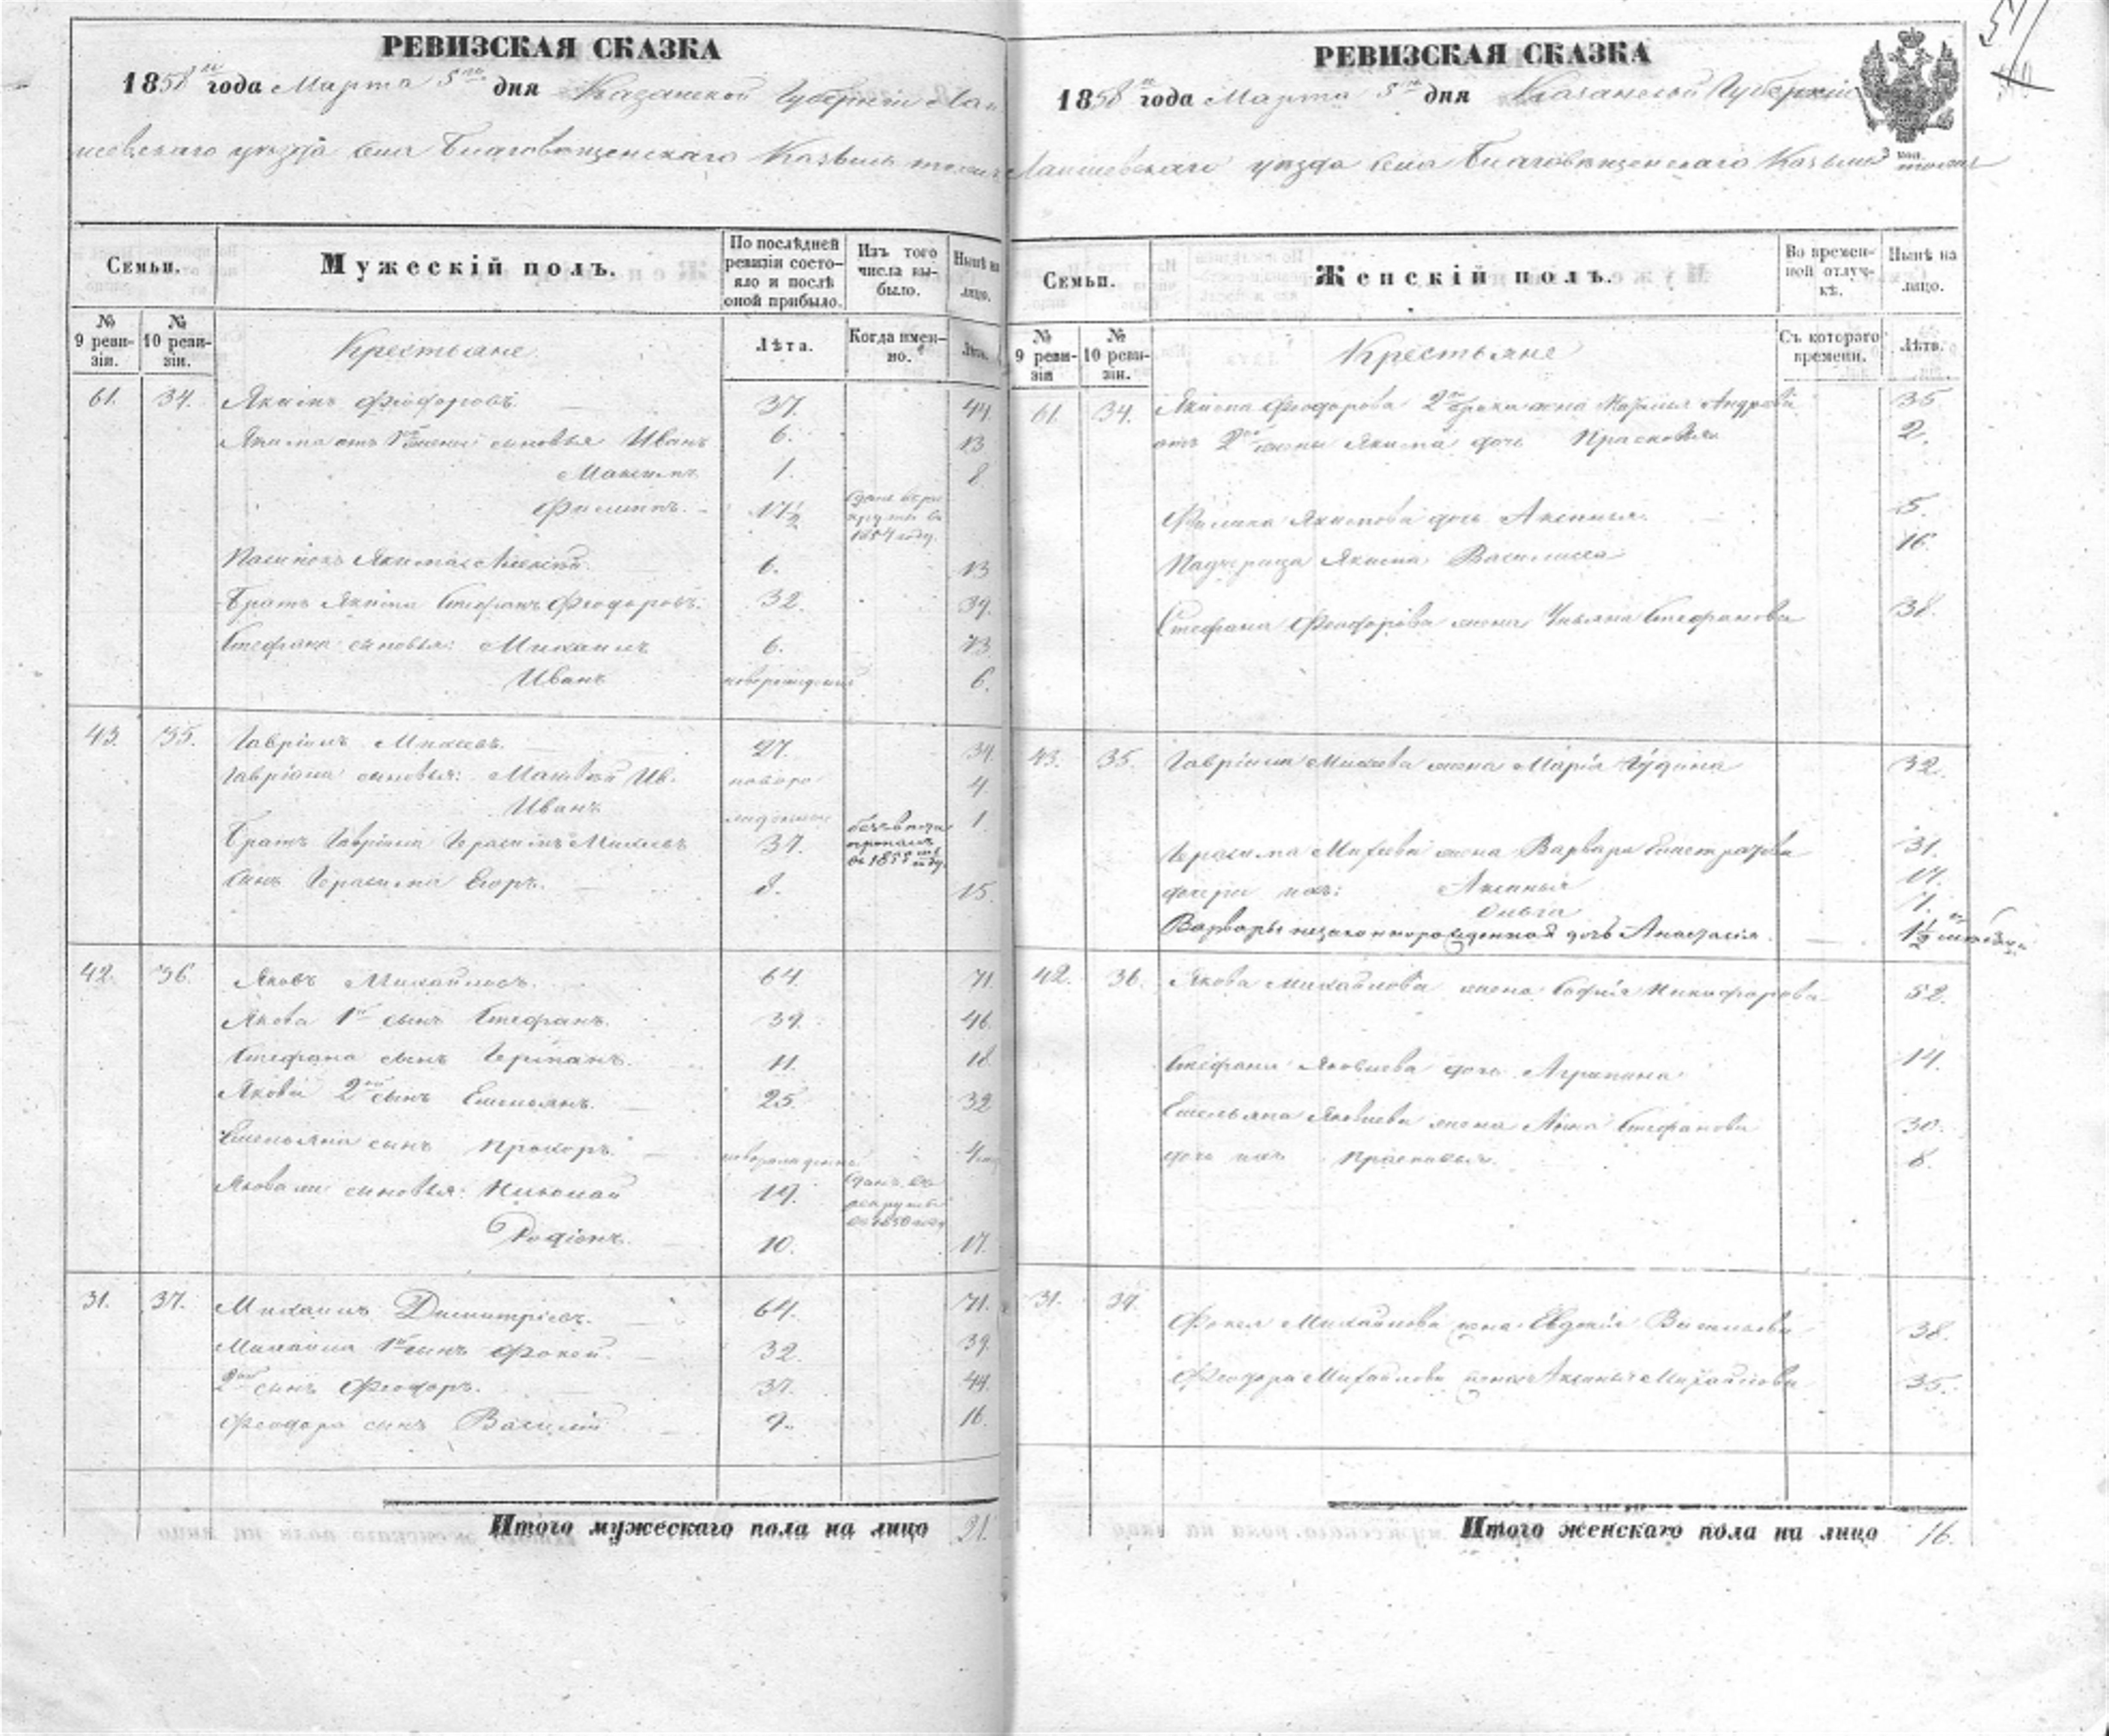 РЕВИЗСКАЯ СКАЗКА
1858 года Марта 5 дня Казанской Губернии Лаи
шевскаго уѣзда села Благовѣщенскаго Казыли тожъ
Семьи.
Мужескій полъ.
По послѣдней ревизіи состояло и послѣ оной прибыло.
Изъ того числа выбыло.
Нынѣ на лицо.
№ 9 ревизіи.
№ 10 ревизіи.
Крестьяне
Лѣта.
Когда именно.
Лѣта.
61. 34. Якимъ Феодоровъ 37. 44.
Якима отъ 1й жены сыновья Иванъ 6. 13
Максимъ 1. 8
Филиппъ. 17½ въ 1854 году.
Пасынокъ Якима Алексѣй 6. 13
Братъ Якима Стефанъ Феодоровъ. 32. 39.
Стефана сыновья: Михаилъ 6. 13.
Иванъ новорожденный 6.
43. 35. Гавріилъ Михеевъ. 27. 34.
Гавріила сыновья: Матвей 4
Иванъ 1.
Братъ Гавріила Герасимъ Михеевъ 37. безъ вѣсти пропалъ въ 1855 году.
Сынъ Герасима Егоръ. 8. 15.
42. 36. Яковъ Михайловъ. 64. 71.
Якова 1й сынъ Стефанъ. 39. 46.
Стефана сынъ Германъ. 11. 18
Якова 2й сынъ Емельянъ. 25. 32
Емельяна сынъ Прохоръ новорожденъ
Якова сыновья: Николай 19. Сданъ въ рекруты въ 1850 году
Родіонъ. 10. 17.
31. 37. Михаилъ Димитріевъ. 64. 71.
Михаила 1й сынъ Фокей. 32. 39.
2й сынъ Феодоръ. 37. 44.
Феодора сынъ Василій 9. 16.
Итого мужескаго пола на лицо 21.
РЕВИЗСКАЯ СКАЗКА
1858 года Марта 5 дня Казанской Губерніи
Лаишевскаго уѣзда села Благовѣщенскаго Казыли тожъ
3 коп.
Семьи.
Женскій полъ.
Во временной отлучкѣ.
Нынѣ на лицо.
№ 9 ревизіи
№ 10 ревизіи.
Крестьяне
Съ котораго времени.
Лѣта.
61. 34. Якима Феодорова 2го брака жена Марья Андреева 35
отъ 2й жены Якима дочь Прасковья 2.
Филипа Якимова дочь Аксинья. 5.
Падчерица Якима Василиса 16.
Стефана Феодорова жена Ульяна Стефанова 38.
43. 35. Гавріила Михеева жена Марія 32.
Герасима Михеева жена Варвара 31.
дочери ихъ: Аксинья 17.
Ольга 7.
Варвары незаконнорожденная дочь Анастасія. 1½
42. 36. Якова Михайлова жена Софія Никифорова 52.
Стефана Яковлева дочь Аграпина 14.
Емельяна Яковлева жена Анна Стефанова 30.
дочь ихъ Прасковья. 8.
31. 37. Фокея Михайлова жена Евдокія Васильева 38.
Феодора Михайлова жена Аксинья Михайлова 35.
Итого женскаго пола на лицо 16.